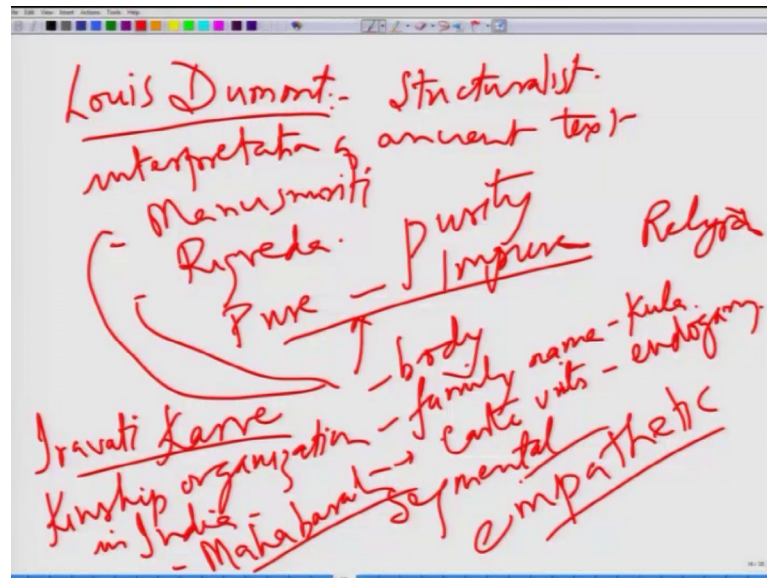 File Edit View Insert Actions Tools Help
Louis Dumont:- Structuralist.
interpretation of ancient text
- Manusmriti
- Rigveda.
Purity
Pure - Impure
Religion
- body
Iravati Karve
Kinship organization - family name - Kula.
in India - caste units - endogamy.
- Mahabarat → segmental
empathetic